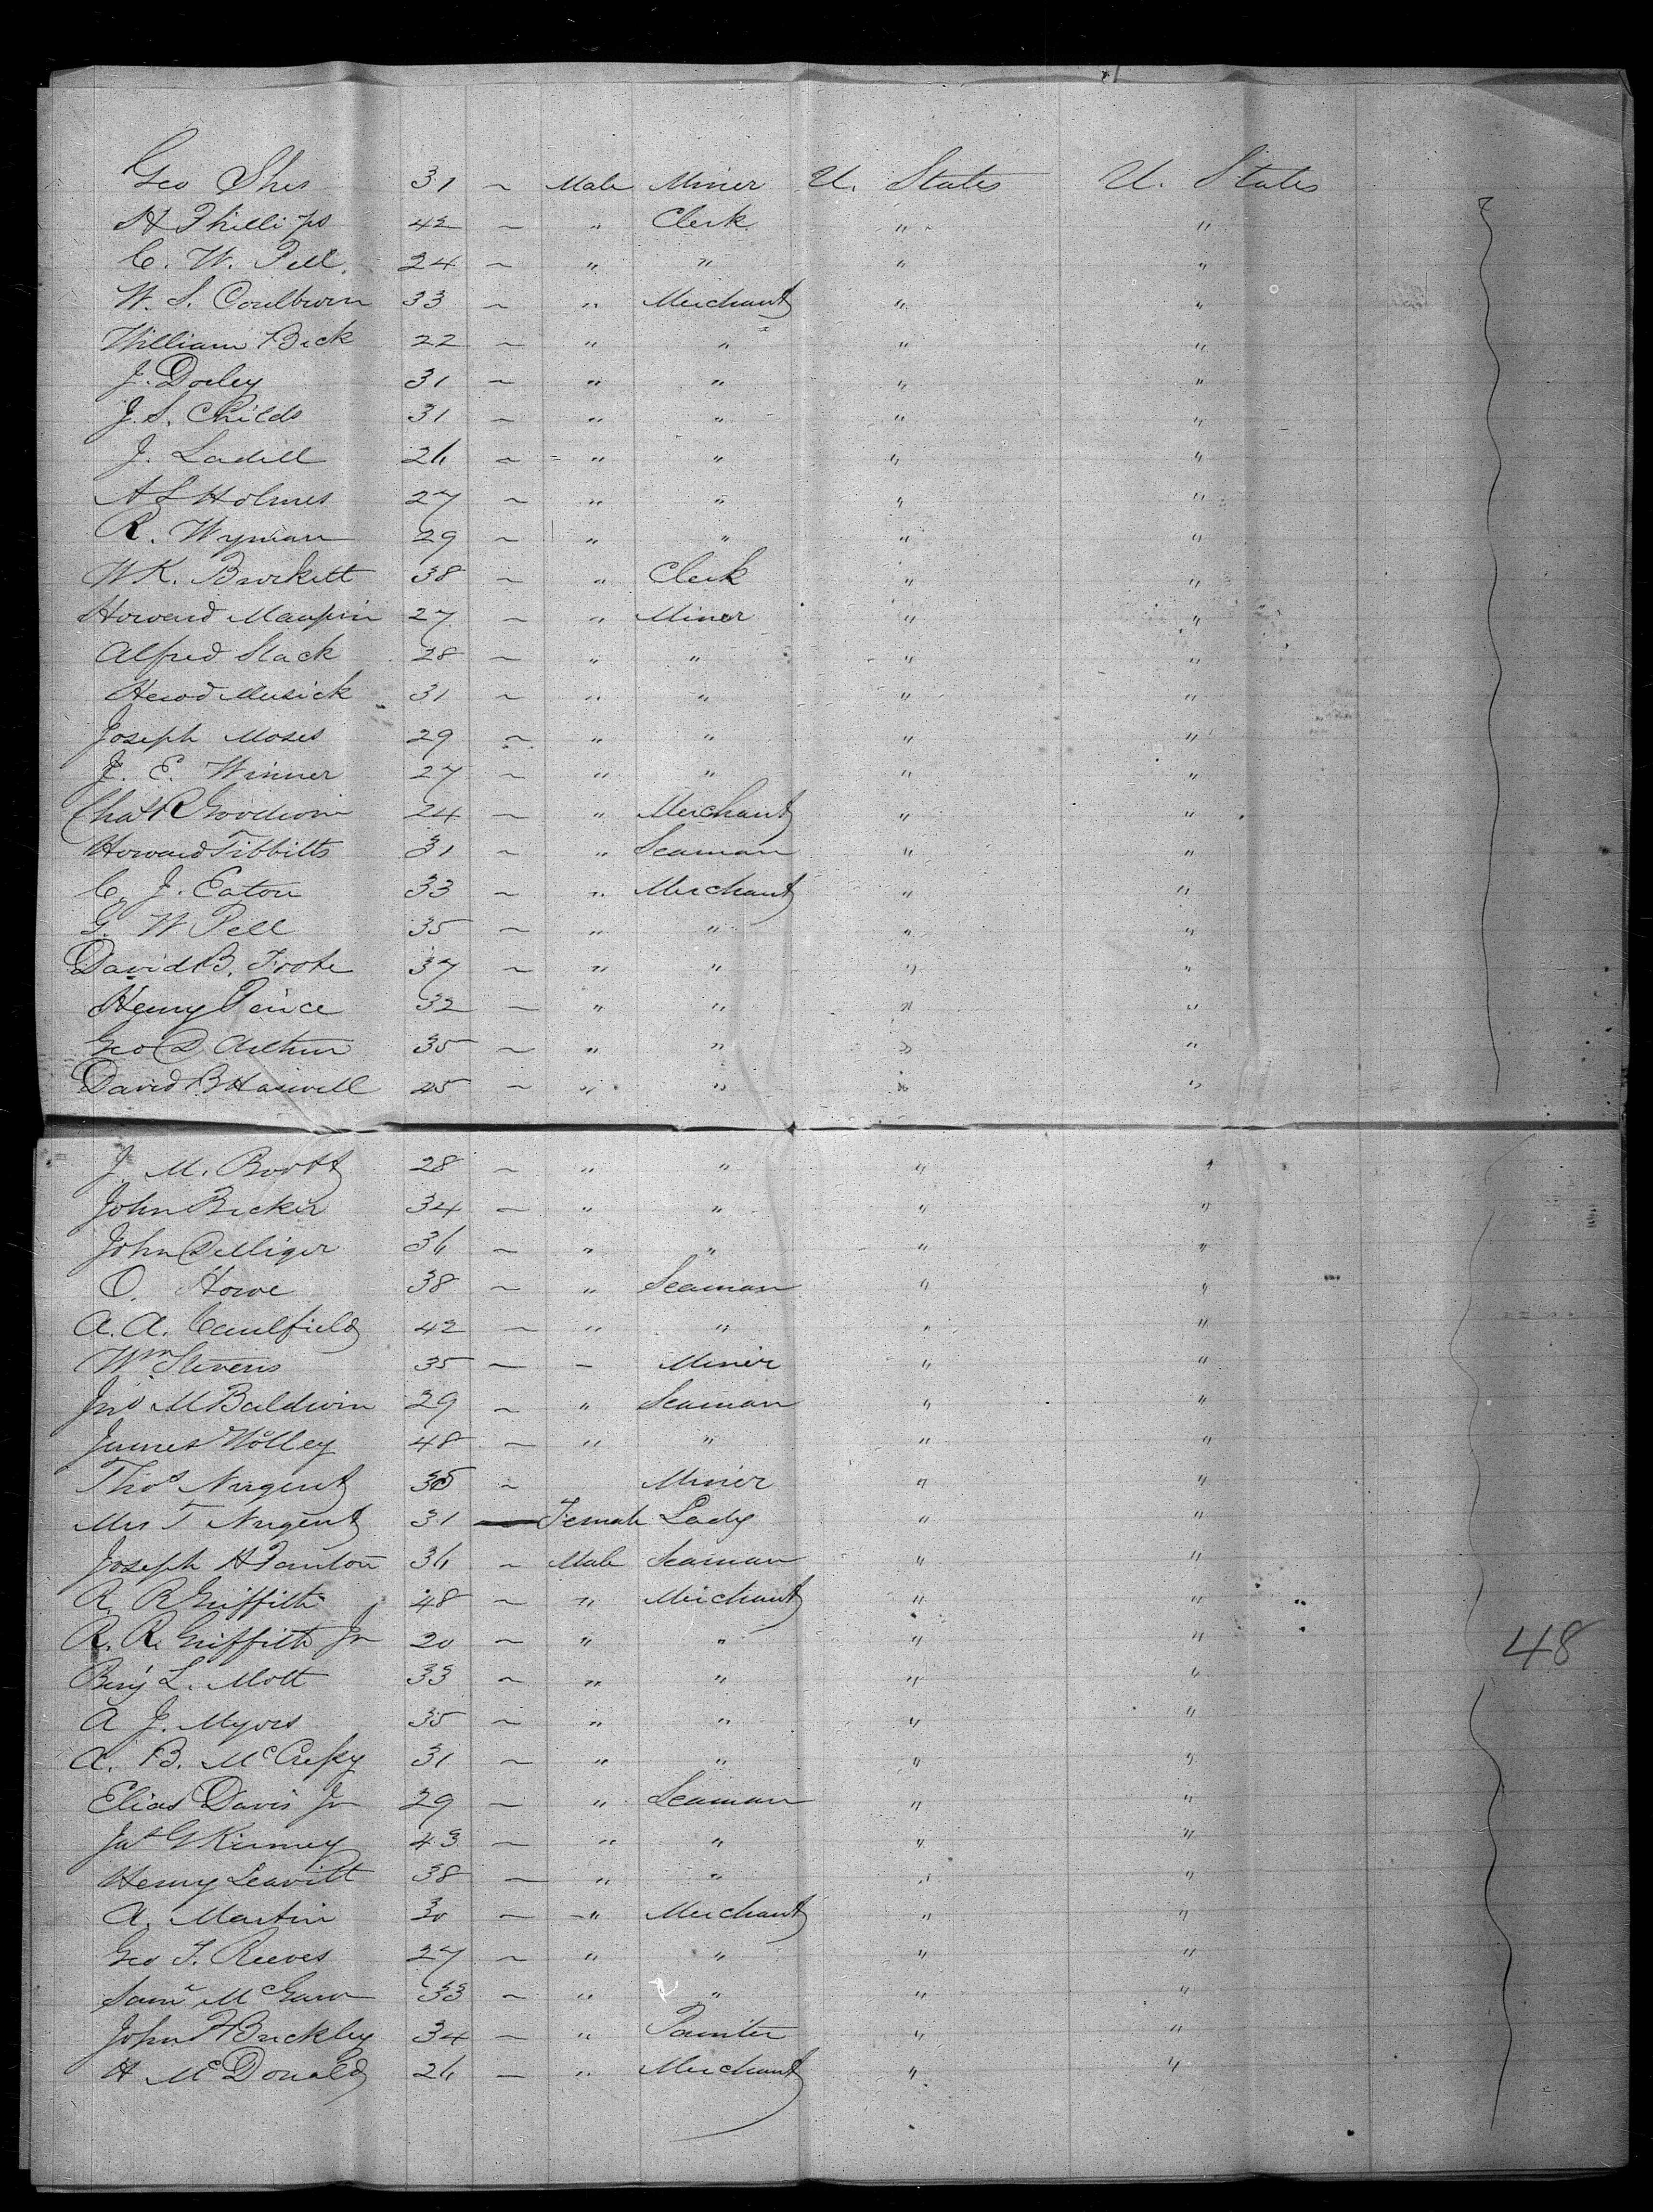 Geo Shes 31 ~ Male Miner U. States U. States
H Phillips 42 ~ " Clerk " "
C. W. Pell 24 ~ " " " "
W. S. Coulbwin 33 ~ " Merchant " "
William Beck 22 ~ " " " "
J. Doeley 31 ~ " " " "
J. S. Childs 31 ~ " " " "
J. Ladell 26 ~ " " " "
A S Holmes 27 ~ " " " "
R. Wyman 29 ~ " " " "
W K. Brockett 38 ~ " Clerk " "
Howard Maupin 27 ~ " Miner " "
Alfred Slack 28 ~ " " " "
Herod Musick 31 ~ " " " "
Joseph Moses 29 ~ " " " "
J. E. Winner 27 ~ " " " "
Chas R Goodwin 24 ~ " Merchant " "
Howard Tibbitts 31 ~ " Seaman " "
C. J. Eaton 33 ~ " Merchant " "
G. W Pell 35 ~ " " " "
David B. Foote 37 ~ " " " "
Henry Peirce 32 ~ " " " "
Geo D Arthur 35 ~ " " " "
David B Haswell 45 ~ " " " "
J. M. Bortt 28 ~ " " " "
John Becker 34 ~ " " " "
John Delliger 36 ~ " " " "
O. Howe 38 ~ " Seaman " "
A. A. Caulfield 42 ~ " " " "
Wm Stevens 35 — - Miner " "
Jno M Baldwin 29 ~ " Seaman " "
James Wolley 48 ~ " " " "
Thos Nugent 35 ~ Miner " "
Mrs T Nugent 31 — Female Lady " "
Joseph H Panton 36 ~ Male Seaman " "
R. R Griffith 48 ~ " Merchant " "
R. R. Griffith Jr 20 ~ " " " " 48
Benj L. Mott 33 ~ " " " "
A J. Myers 35 ~ " " " "
A. B. McCrefky 31 ~ " " " "
Elias Davis Jr 29 ~ " Seaman " "
Jas G Kinney 43 ~ " " " "
Henry Leavitt 38 ~ " " " "
A. Martin 30 ~ " Merchant " "
Geo F. Reeves 27 ~ " " " "
Saml McGaw 33 ~ " " " "
John F Buckley 34 ~ " Painter " "
H McDonald 26 — " Merchant " "